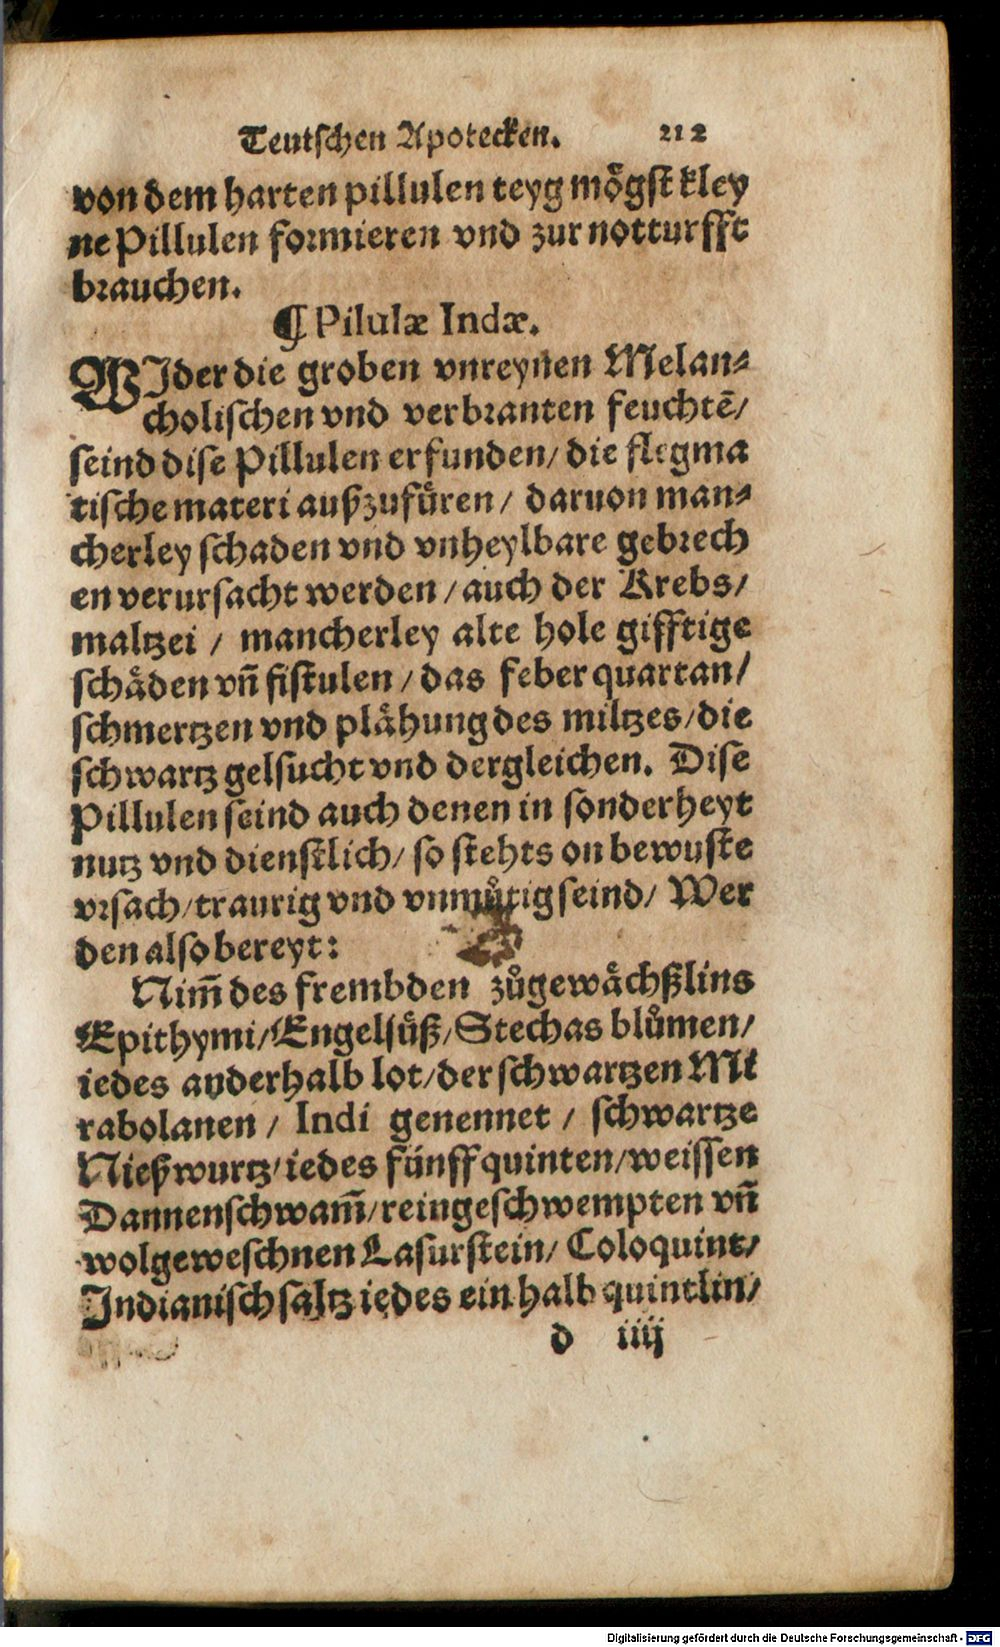 Teutschen Apotecken. 212
von dem harten pillulen teyg mögst kley
ne Pillulen formieren vnd zur notturfft
brauchen.
¶ Pilulæ Indæ.
WIder die groben vnreynen Melan⸗
cholischen vnd verbranten feuchtē/
seind dise Pillulen erfunden/ die flegma
tische materi außzufüren/ daruon man⸗
cherley schaden vnd vnheylbare gebrech
en verursacht werden/ auch der Krebs/
maltzei / mancherley alte hole gifftige
schäden vñ fistulen/ das feber quartan/
schmertzen vnd plähung des miltzes/ die
schwartz gelsucht vnd dergleichen. Dise
Pillulen seind auch denen in sonderheyt
nutz vnd dienstlich/ so stehts on bewuste
vrsach/ traurig vnd vnmůtig seind/ Wer
den also bereyt:
Nim̃ des frembden zůgewächßlins
Epithymi/ Engelsüß/ Stechas blůmen/
iedes anderhalb lot/ der schwartzen Mi
rabolanen / Indi genennet / schwartze
Nießwurtz/ iedes fünff quinten/ weissen
Dannenschwam̃/ reingeschwempten vñ
wolgeweschnen Lasurstein/ Coloquint/
Indianisch saltz iedes ein halb quintlin/
d iiij
Digitalisierung gefördert durch die Deutsche Forschungsgemeinschaft - DFG